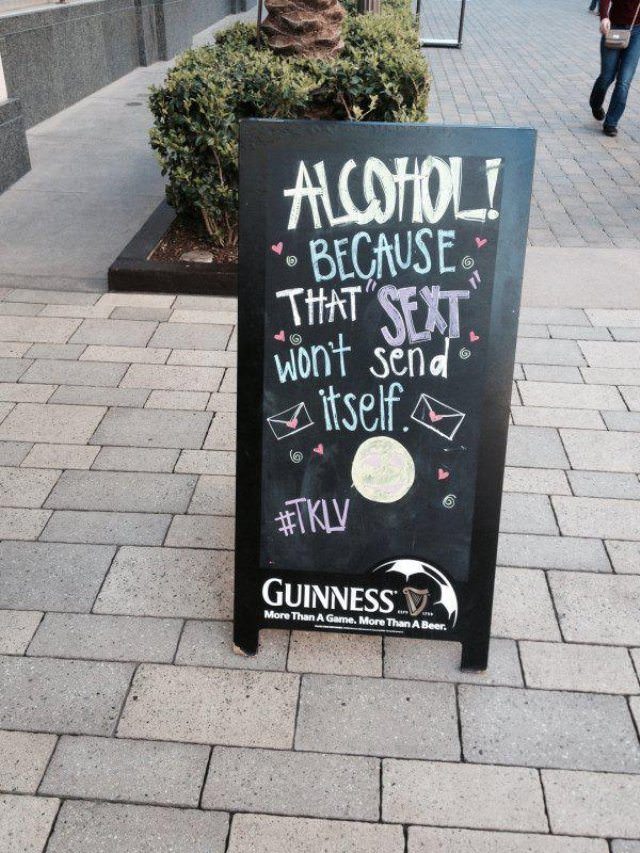 ALCOHOL!
BECAUSE
THAT "SEXT"
won't send
itself.
#TKLV
GUINNESS
ESTD 1759
More Than A Game. More Than A Beer.